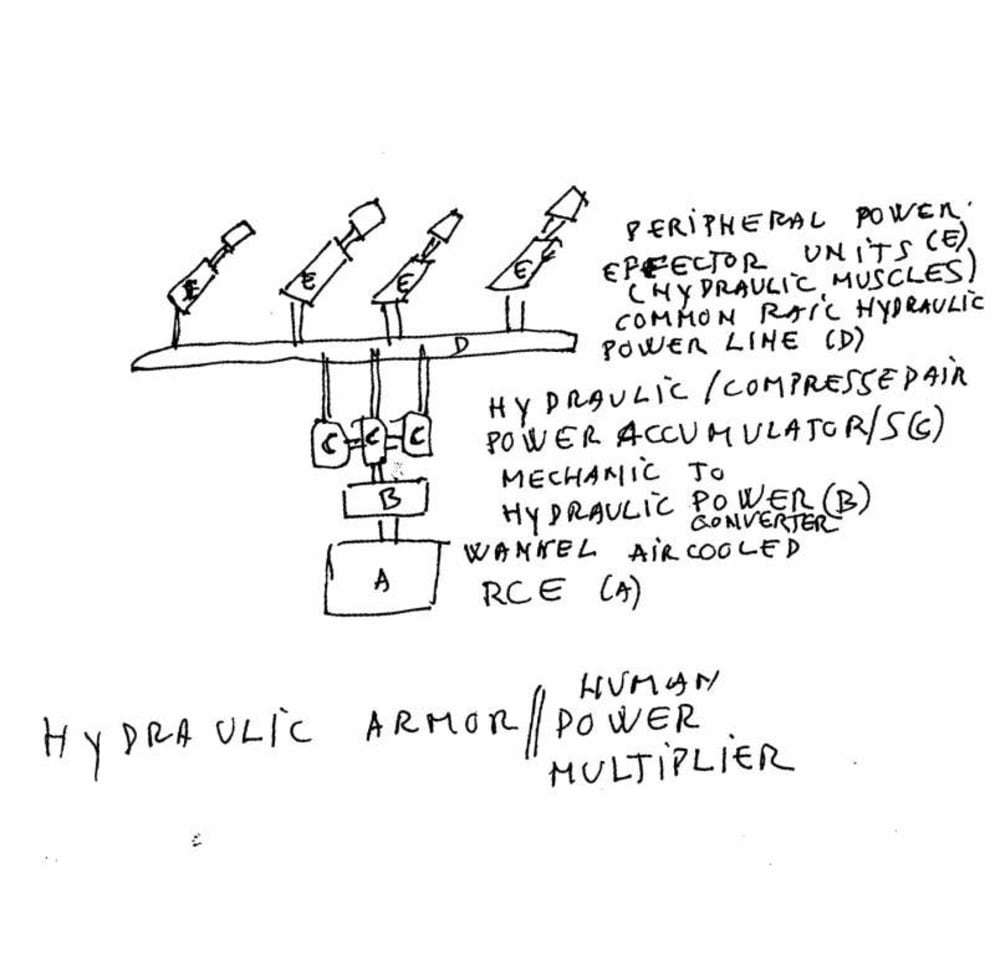 PERIPHERAL POWER
EFFECTOR UNITS (E)
(HYDRAULIC MUSCLES)
COMMON RAIL HYDRAULIC
POWER LINE (D)
HYDRAULIC/COMPRESSED AIR
POWER ACCUMULATOR/S (C)
MECHANIC TO
HYDRAULIC POWER (B)
CONVERTER
WANKEL AIRCOOLED
RCE (A)
E
E
E
E
D
C
C
C
B
A
HYDRAULIC ARMOR//HUMAN
POWER
MULTIPLIER